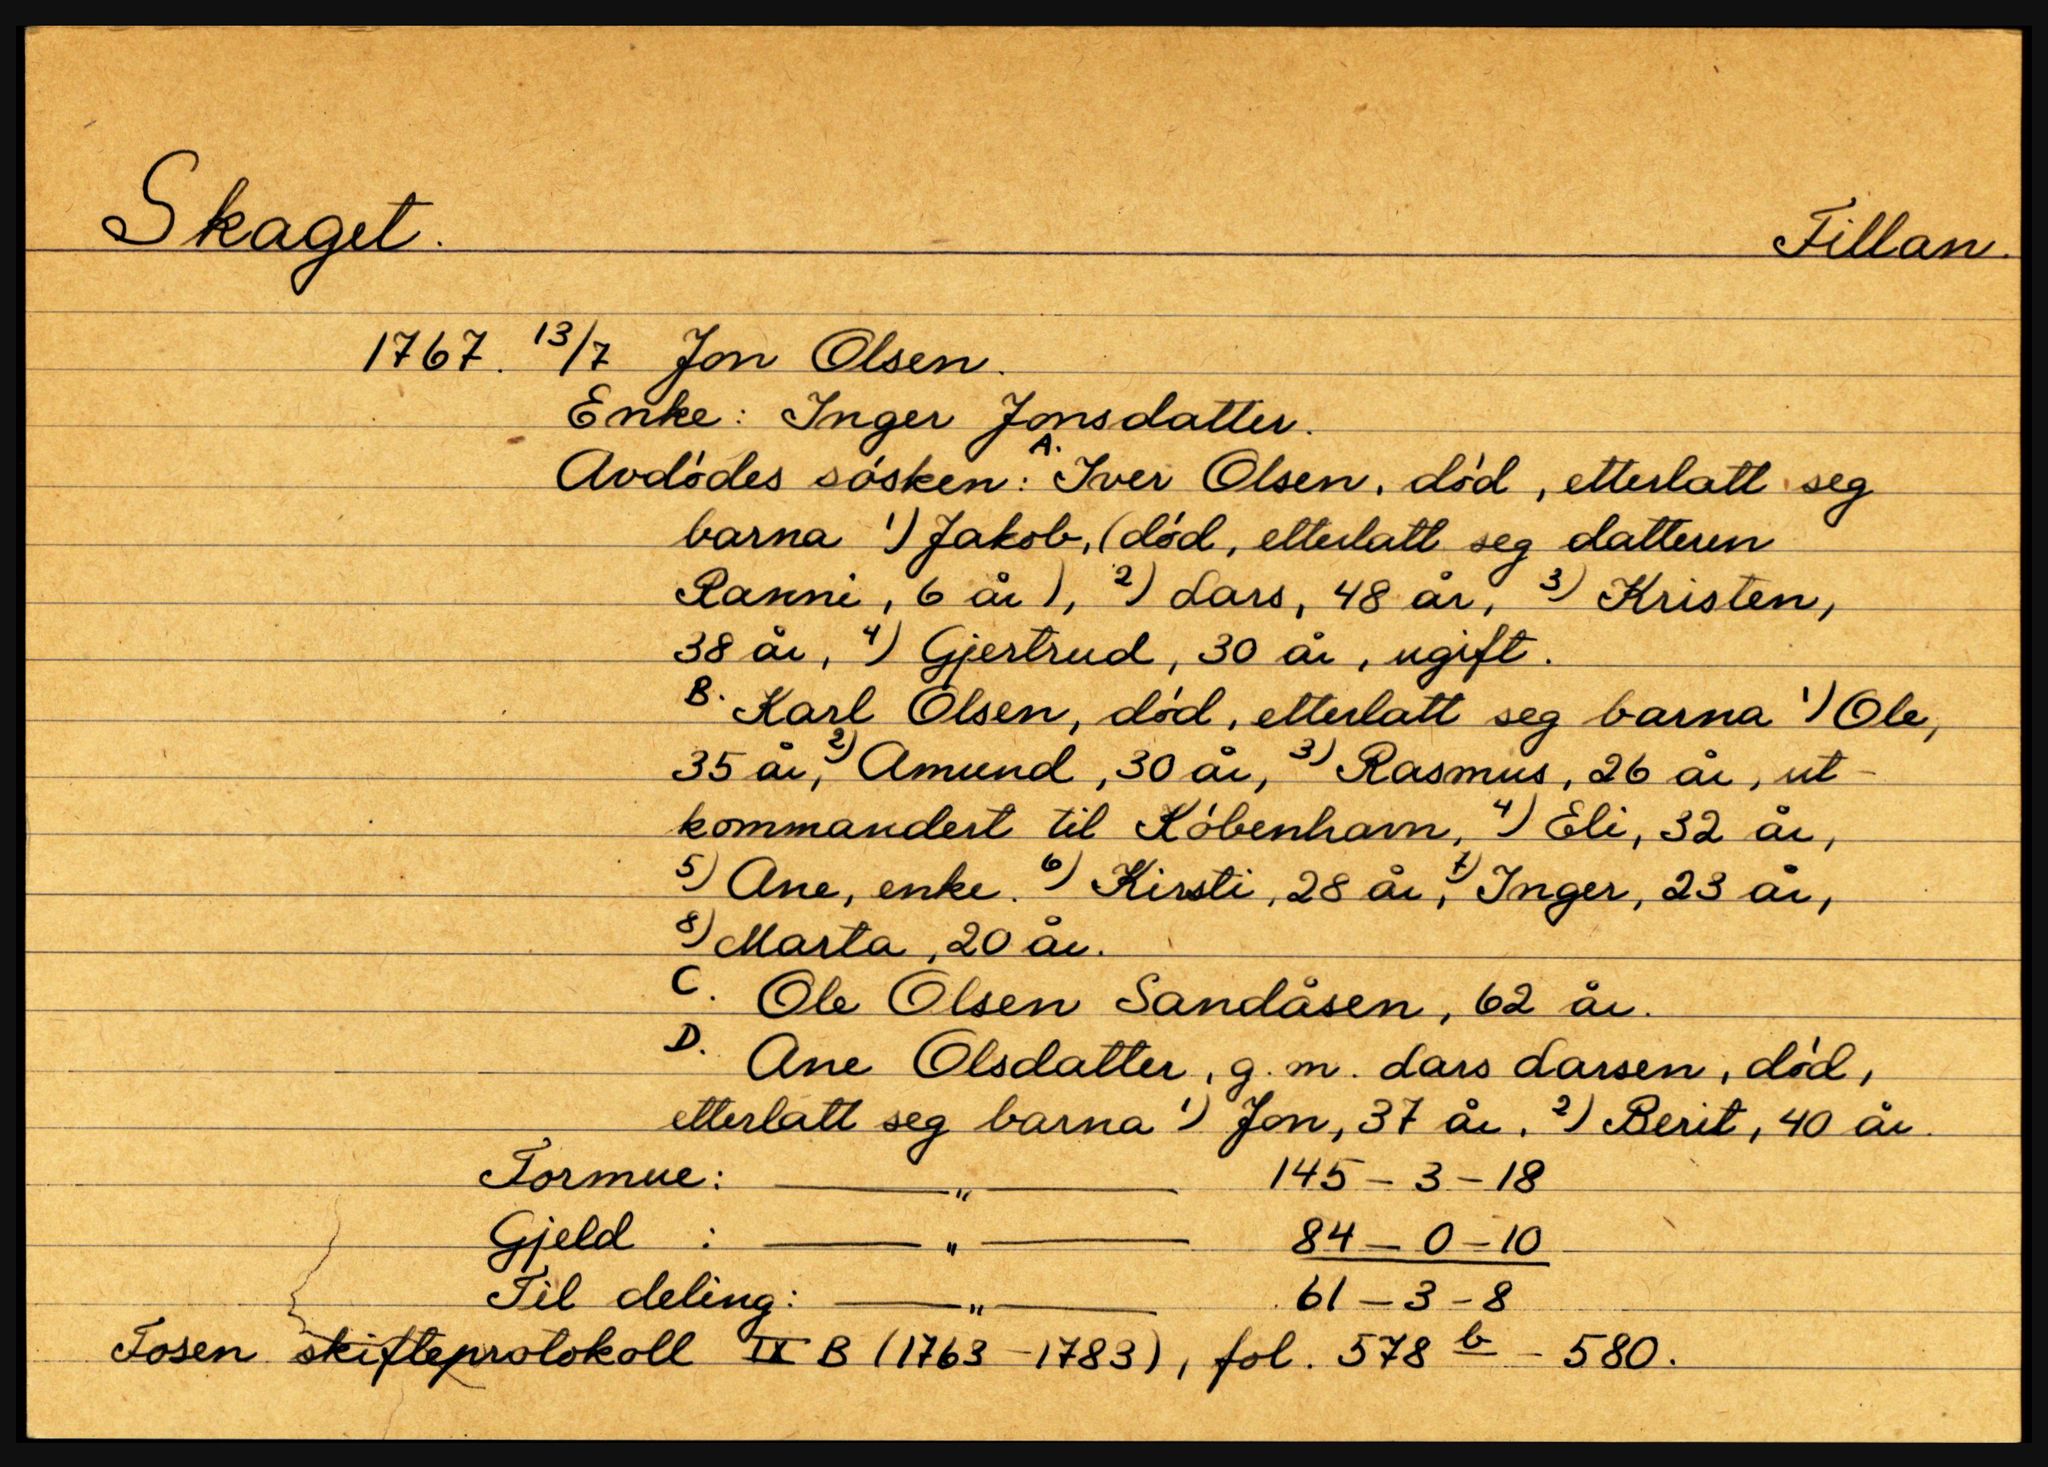 Skaget. Fillan.
1767. 13/7 Jon Olsen.
Enke: Inger Jonsdatter.
Avdødes søsken: A. Iver Olsen, død, etterlatt seg
barna 1) Jakob, (død, etterlatt seg datteren
Ranni, 6 år), 2) Lars, 48 år, 3) Kristen,
38 år, 4) Gjertrud, 30 år, ugift.
B. Karl Olsen, død, etterlatt seg barna 1) Ole,
35 år, 2) Amund, 30 år, 3) Rasmus, 26 år, ut-
kommandert til København, 4) Eli, 32 år,
5) Ane, enke. 6) Kirsti, 28 år, 7) Inger, 23 år,
8) Marta, 20 år.
C. Ole Olsen Sandåsen, 62 år.
D. Ane Olsdatter, g. m. Lars Larsen, død,
etterlatt seg barna 1) Jon, 37 år, 2) Berit, 40 år.
Formue: —— " —— 145 - 3 - 18
Gjeld : —— " —— 84 - 0 - 10
Til deling: —— " —— 61 - 3 - 8
Fosen skifteprotokoll IX B (1763 - 1783), fol. 578 b - 580.